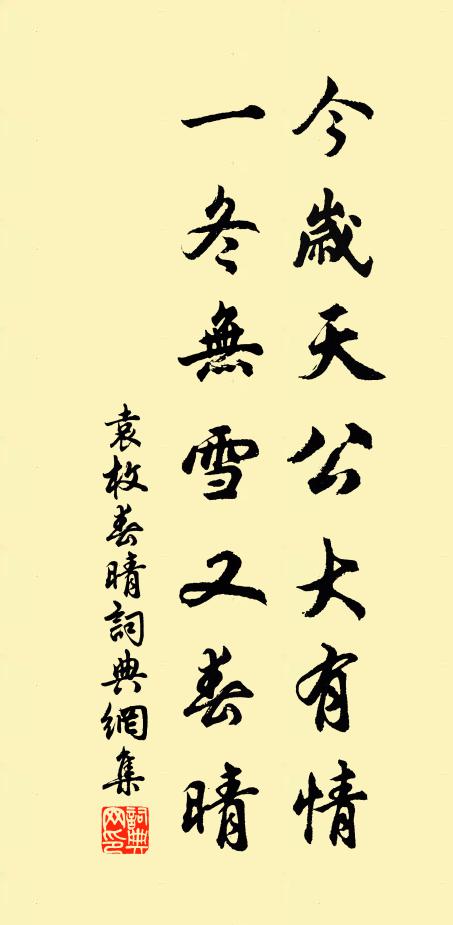 今歲天公大有情
一冬無雪又春晴
袁枚春晴詞典網集
詞典
网印